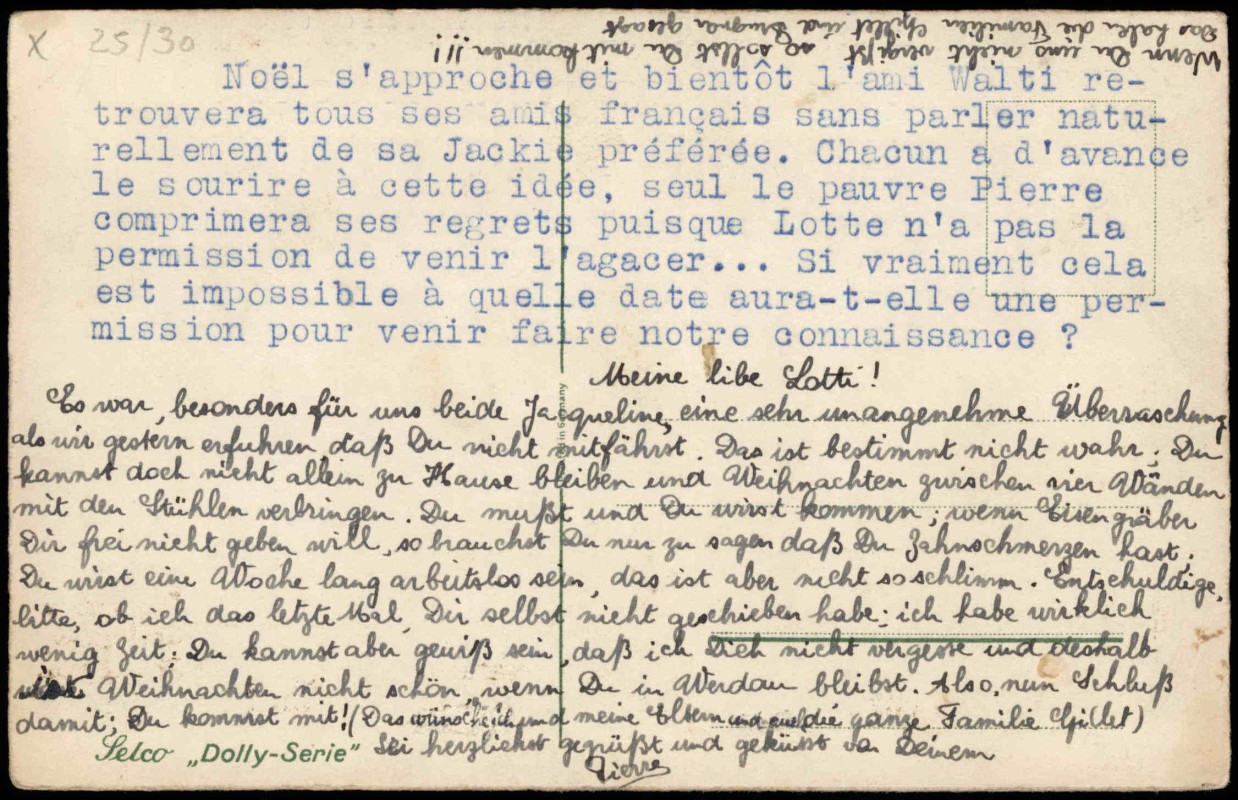 X 25/30
Wenn Du uns nicht vergißt so sollst Du mitkommen!!!
Das haben die Familien Gillet und gesagt
Noël s'approche et bientôt l'ami Walti re-
trouvera tous ses amis français sans parler natu-
rellement de sa Jackie préférée. Chacun a d'avance
le sourire à cette idée, seul le pauvre Pierre
comprimera ses regrets puisque Lotte n'a pas la
permission de venir l'agacer... Si vraiment cela
est impossible à quelle date aura-t-elle une per-
mission pour venir faire notre connaissance ?
Meine libe Lotti!
Es war, besonders für uns beide Jacqueline, eine sehr unangenehme Überraschung
als wir gestern erfuhren, daß Du nicht mitfährst. Das ist bestimmt nicht wahr; Du
kannst doch nicht allein zu Hause bleiben und Weihnachten zwischen vier Wänden
mit den Stühlen verbringen. Du mußt und Du wirst kommen; wenn Eisengräber
Dir frei nicht geben will, so brauchst Du nur zu sagen daß Du Zahnschmerzen hast.
Du wirst eine Woche lang arbeitslos sein, das ist aber nicht so schlimm. Entschuldige,
bitte, ob ich das letzte Mal, Dir selbst nicht geschrieben habe; ich habe wirklich
wenig Zeit; Du kannst aber gewiß sein, daß ich Dich nicht vergesse und deshalb
Weihnachten nicht schön, wenn Du in Werdau bleibst. Also, nun Schluß
damit; Du kommst mit! (Das wünsche ich und meine Eltern und die ganze Familie Gillet)
Sei herzlichst gegrüßt und geküsst von Deinem
Pierre
Selco „Dolly-Serie"
in Germany